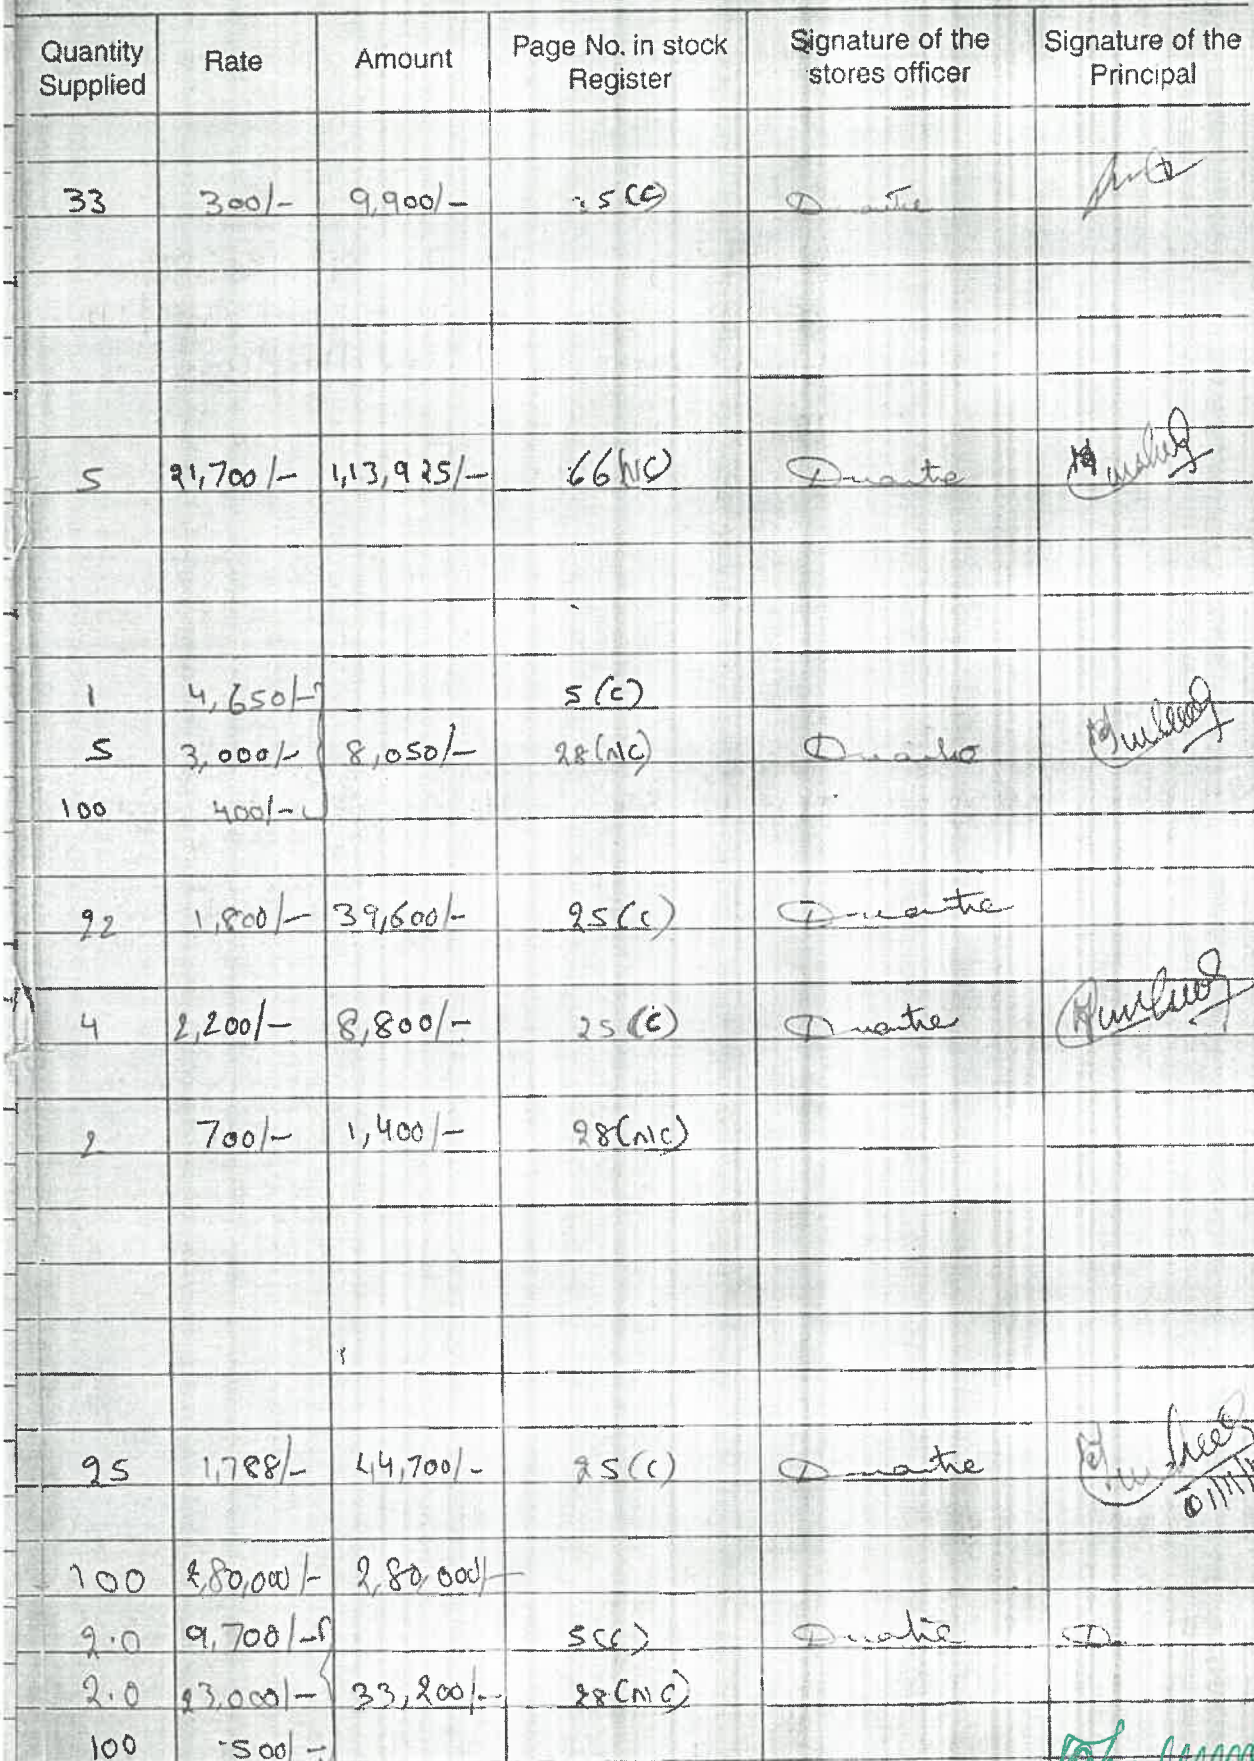 Quantity Supplied Rate Amount Page No. in stock Register Signature of the stores officer Signature of the Principal
33 300/- 9,900/- 5(C)
5 21,700/- 1,13,925/- 66 N/C Duartie
1 4,650/- 5(c)
5 3,000/- 8,050/- 28(N/C)
100 400/-
22 1,800/- 39,600/- 25(c) Duartie
4 2,200/- 8,800/- 25(c) Duartie
2 700/- 1,400/- 28(N/C)
25 1,788/- 44,700/- 25(c) Duartie
100 2,80,000/- 2,80,000/-
2.0 9,700/- 5(c)
2.0 23,000/- 33,200/- 28(N/C)
100 500/-